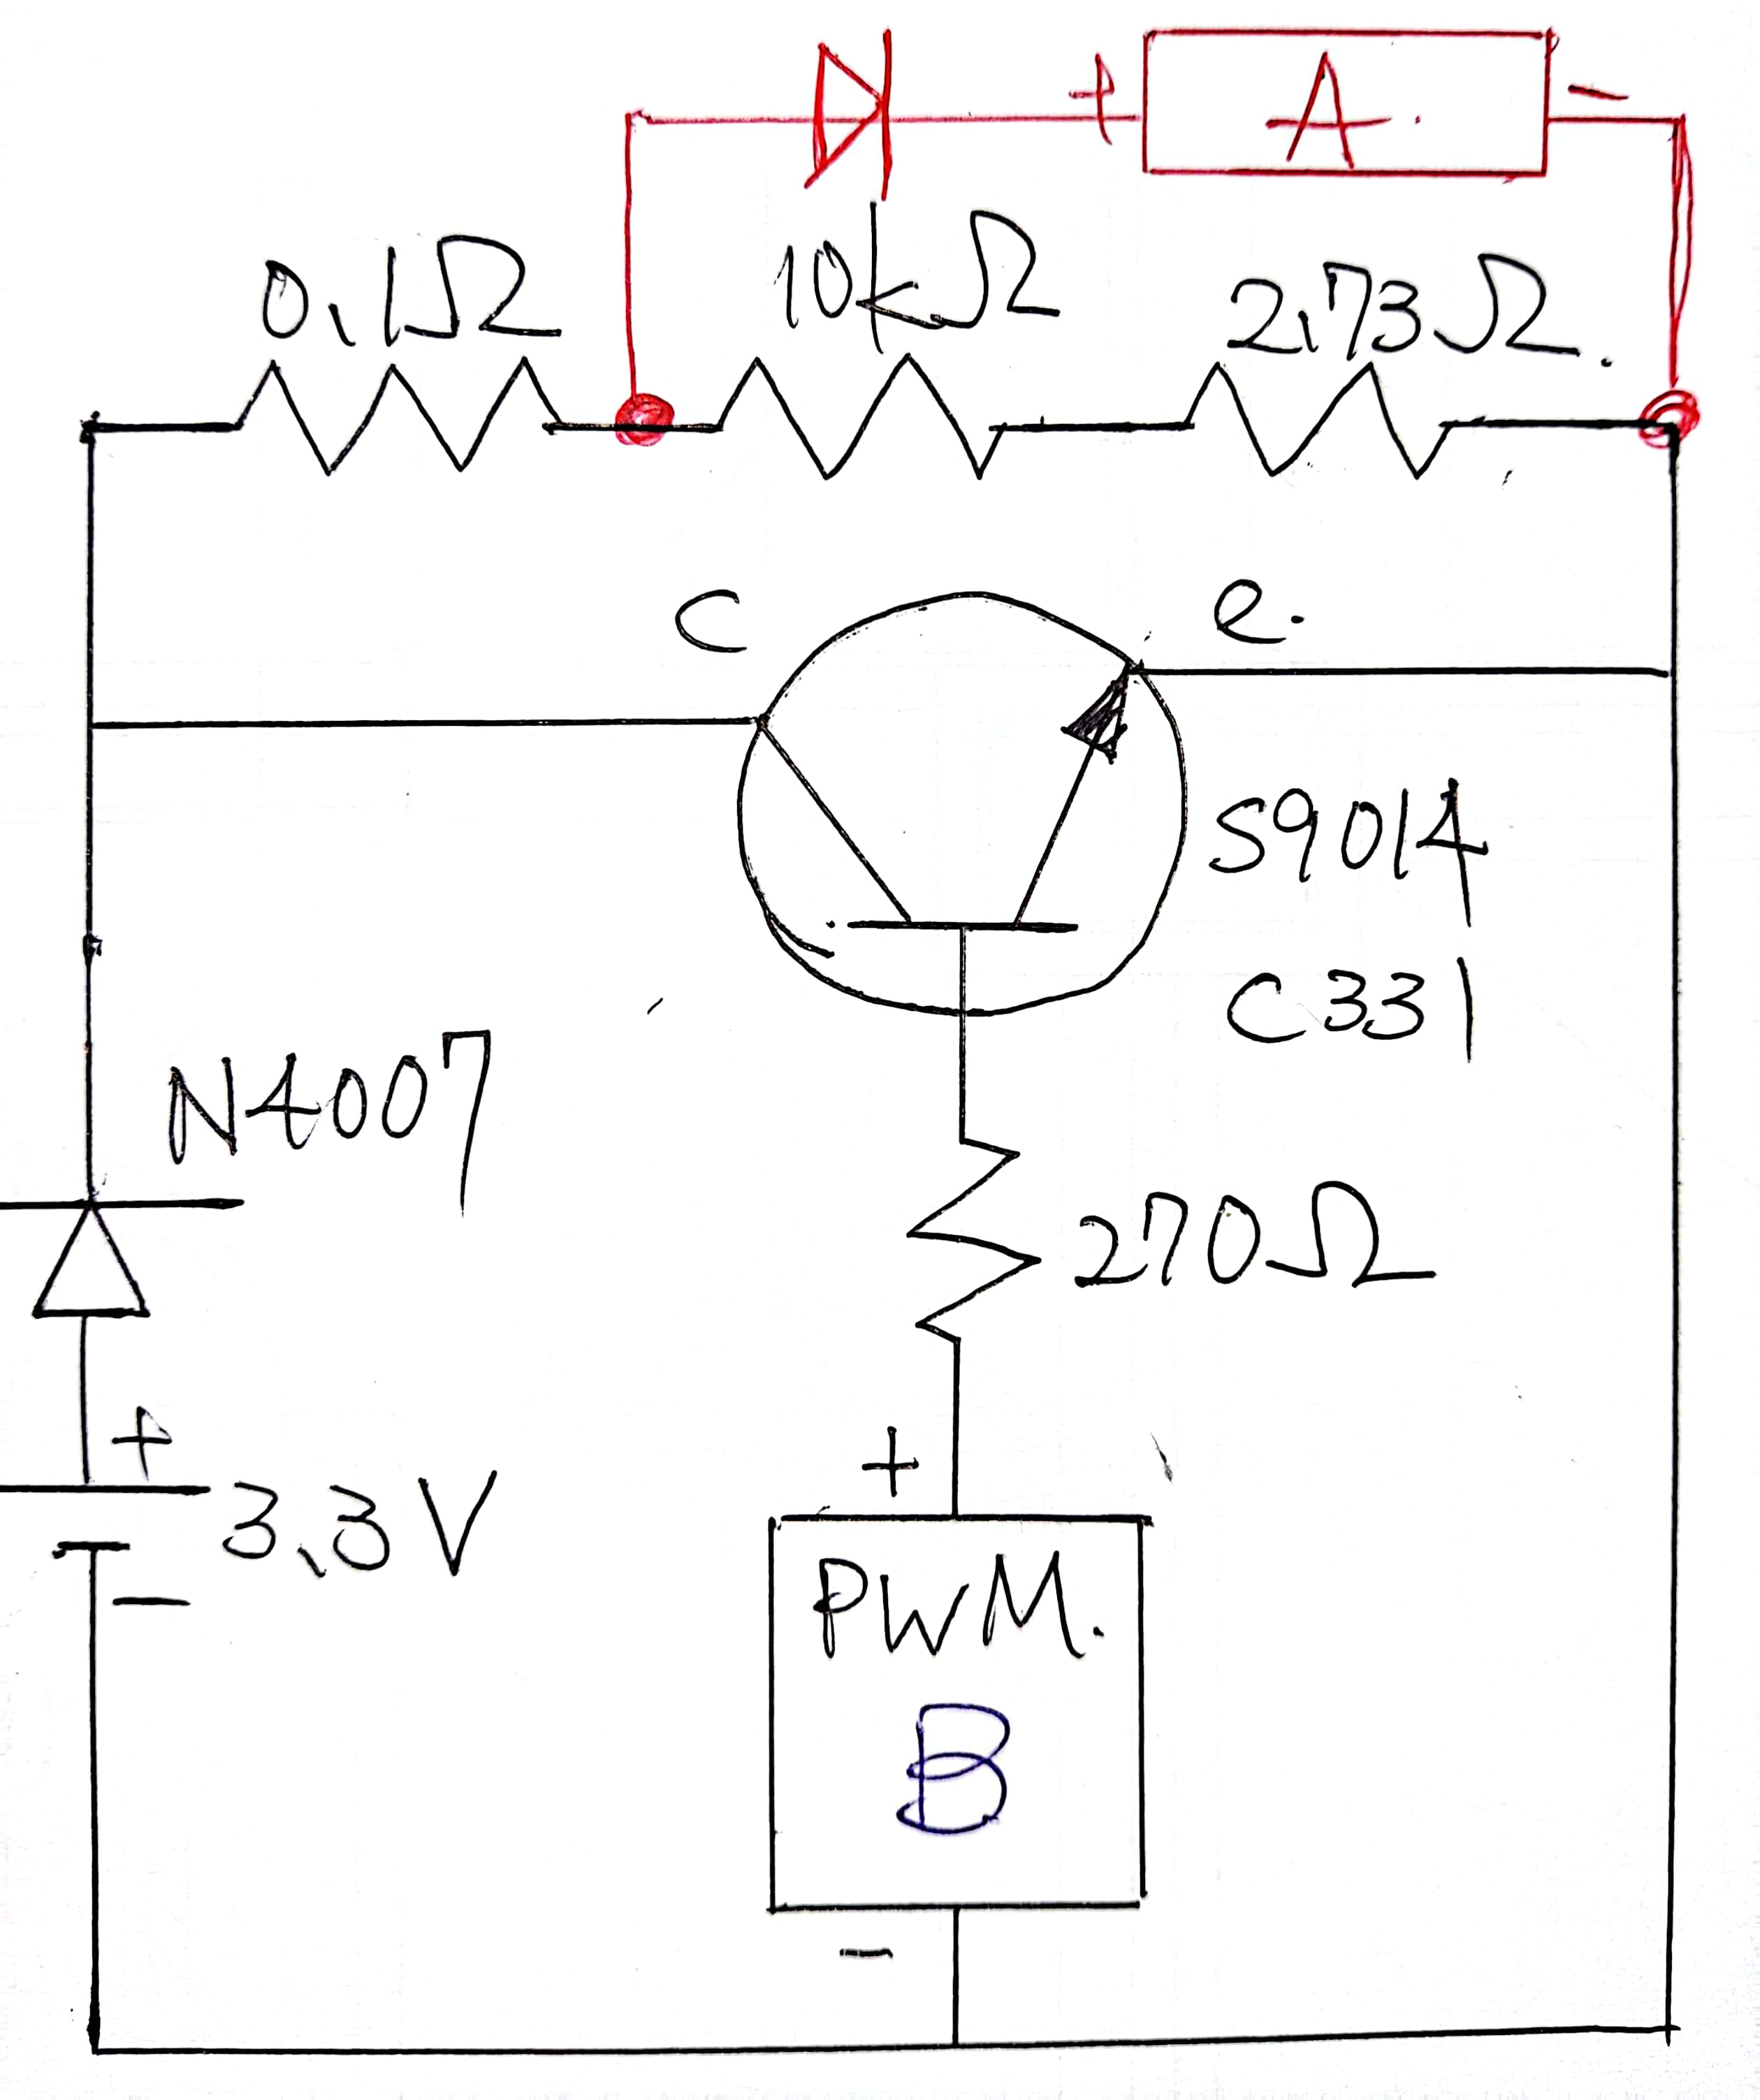 + A. -
0.1Ω 10kΩ 2.73Ω.
C e.
S9014
C331
N4007
270Ω
+ +
3.3V
PWM.
B
-
-